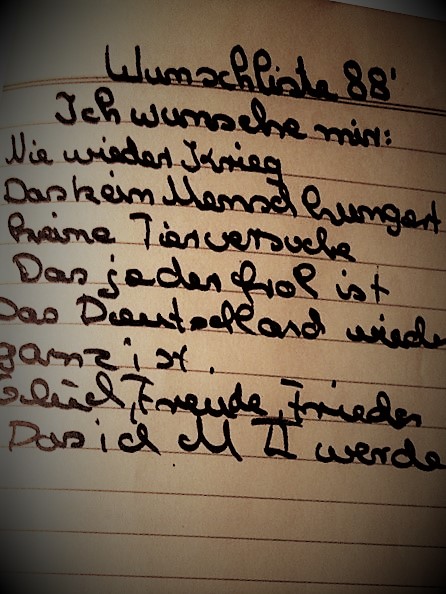 Wunschliste 88'
Ich wunsche mir:
Nie wieder Krieg
Das kein Mensch hungert
keine Tierversuche
Das jeder frol ist
Das Deutschland wieder
ganz ist.
Glück, Freude, Frieden
Das ich M II werde